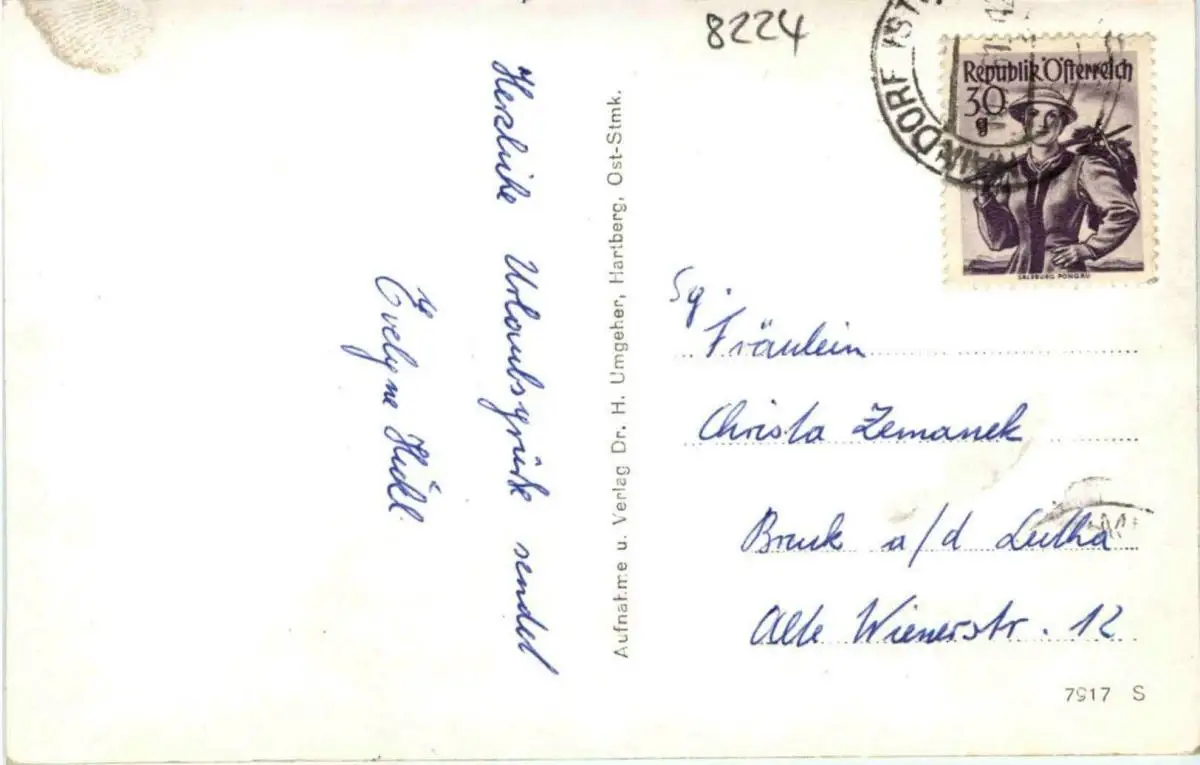 8224
Herzliche Urlaubsgrüße sendet
Evelyne
Aufnahme u. Verlag Dr. H. Umgeher, Hartberg, Ost-Stmk.
Republik Österreich
30
g
SALZBURG PONGAU
Sg.
Fräulein
Christa Zemanek
Bruck a/d Leitha
Alte Wienerstr. 12
7917 S